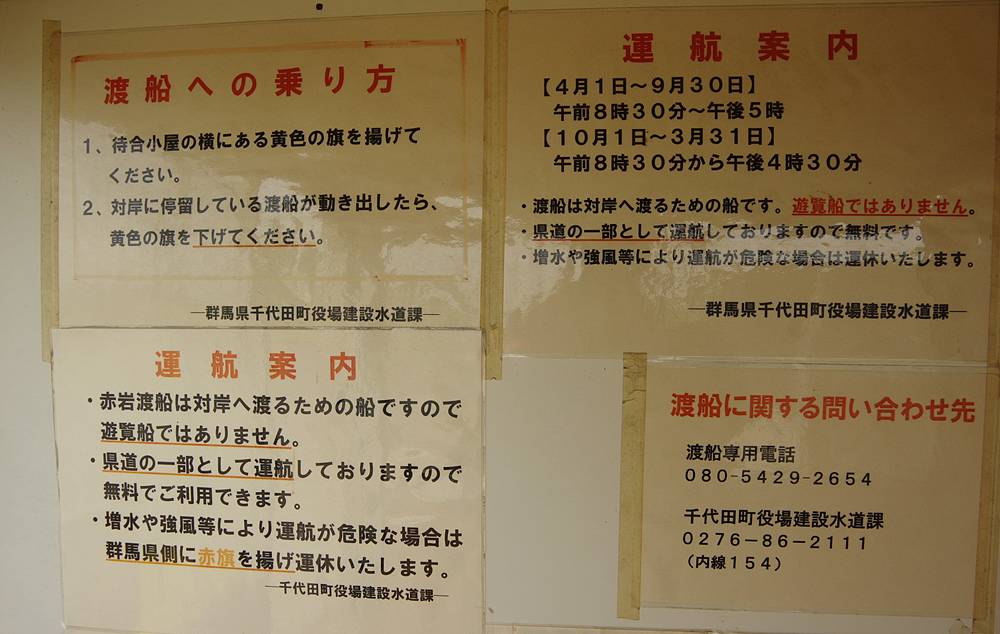 渡船への乗り方
1、待合小屋の横にある黄色の旗を揚げて
ください。
2、対岸に停留している渡船が動き出したら、
黄色の旗を下げてください。
―群馬県千代田町役場建設水道課―
運航案内
【4月1日～9月30日】
午前8時30分～午後5時
【10月1日～3月31日】
午前8時30分から午後4時30分
・渡船は対岸へ渡るための船です。遊覧船ではありません。
・県道の一部として運航しておりますので無料です。
・増水や強風等により運航が危険な場合は運休いたします。
―群馬県千代田町役場建設水道課―
運航案内
・赤岩渡船は対岸へ渡るための船ですので
遊覧船ではありません。
・県道の一部として運航しておりますので
無料でご利用できます。
・増水や強風等により運航が危険な場合は
群馬県側に赤旗を揚げ運休いたします。
―千代田町役場建設水道課―
渡船に関する問い合わせ先
渡船専用電話
080-5429-2654
千代田町役場建設水道課
0276-86-2111
(内線154)